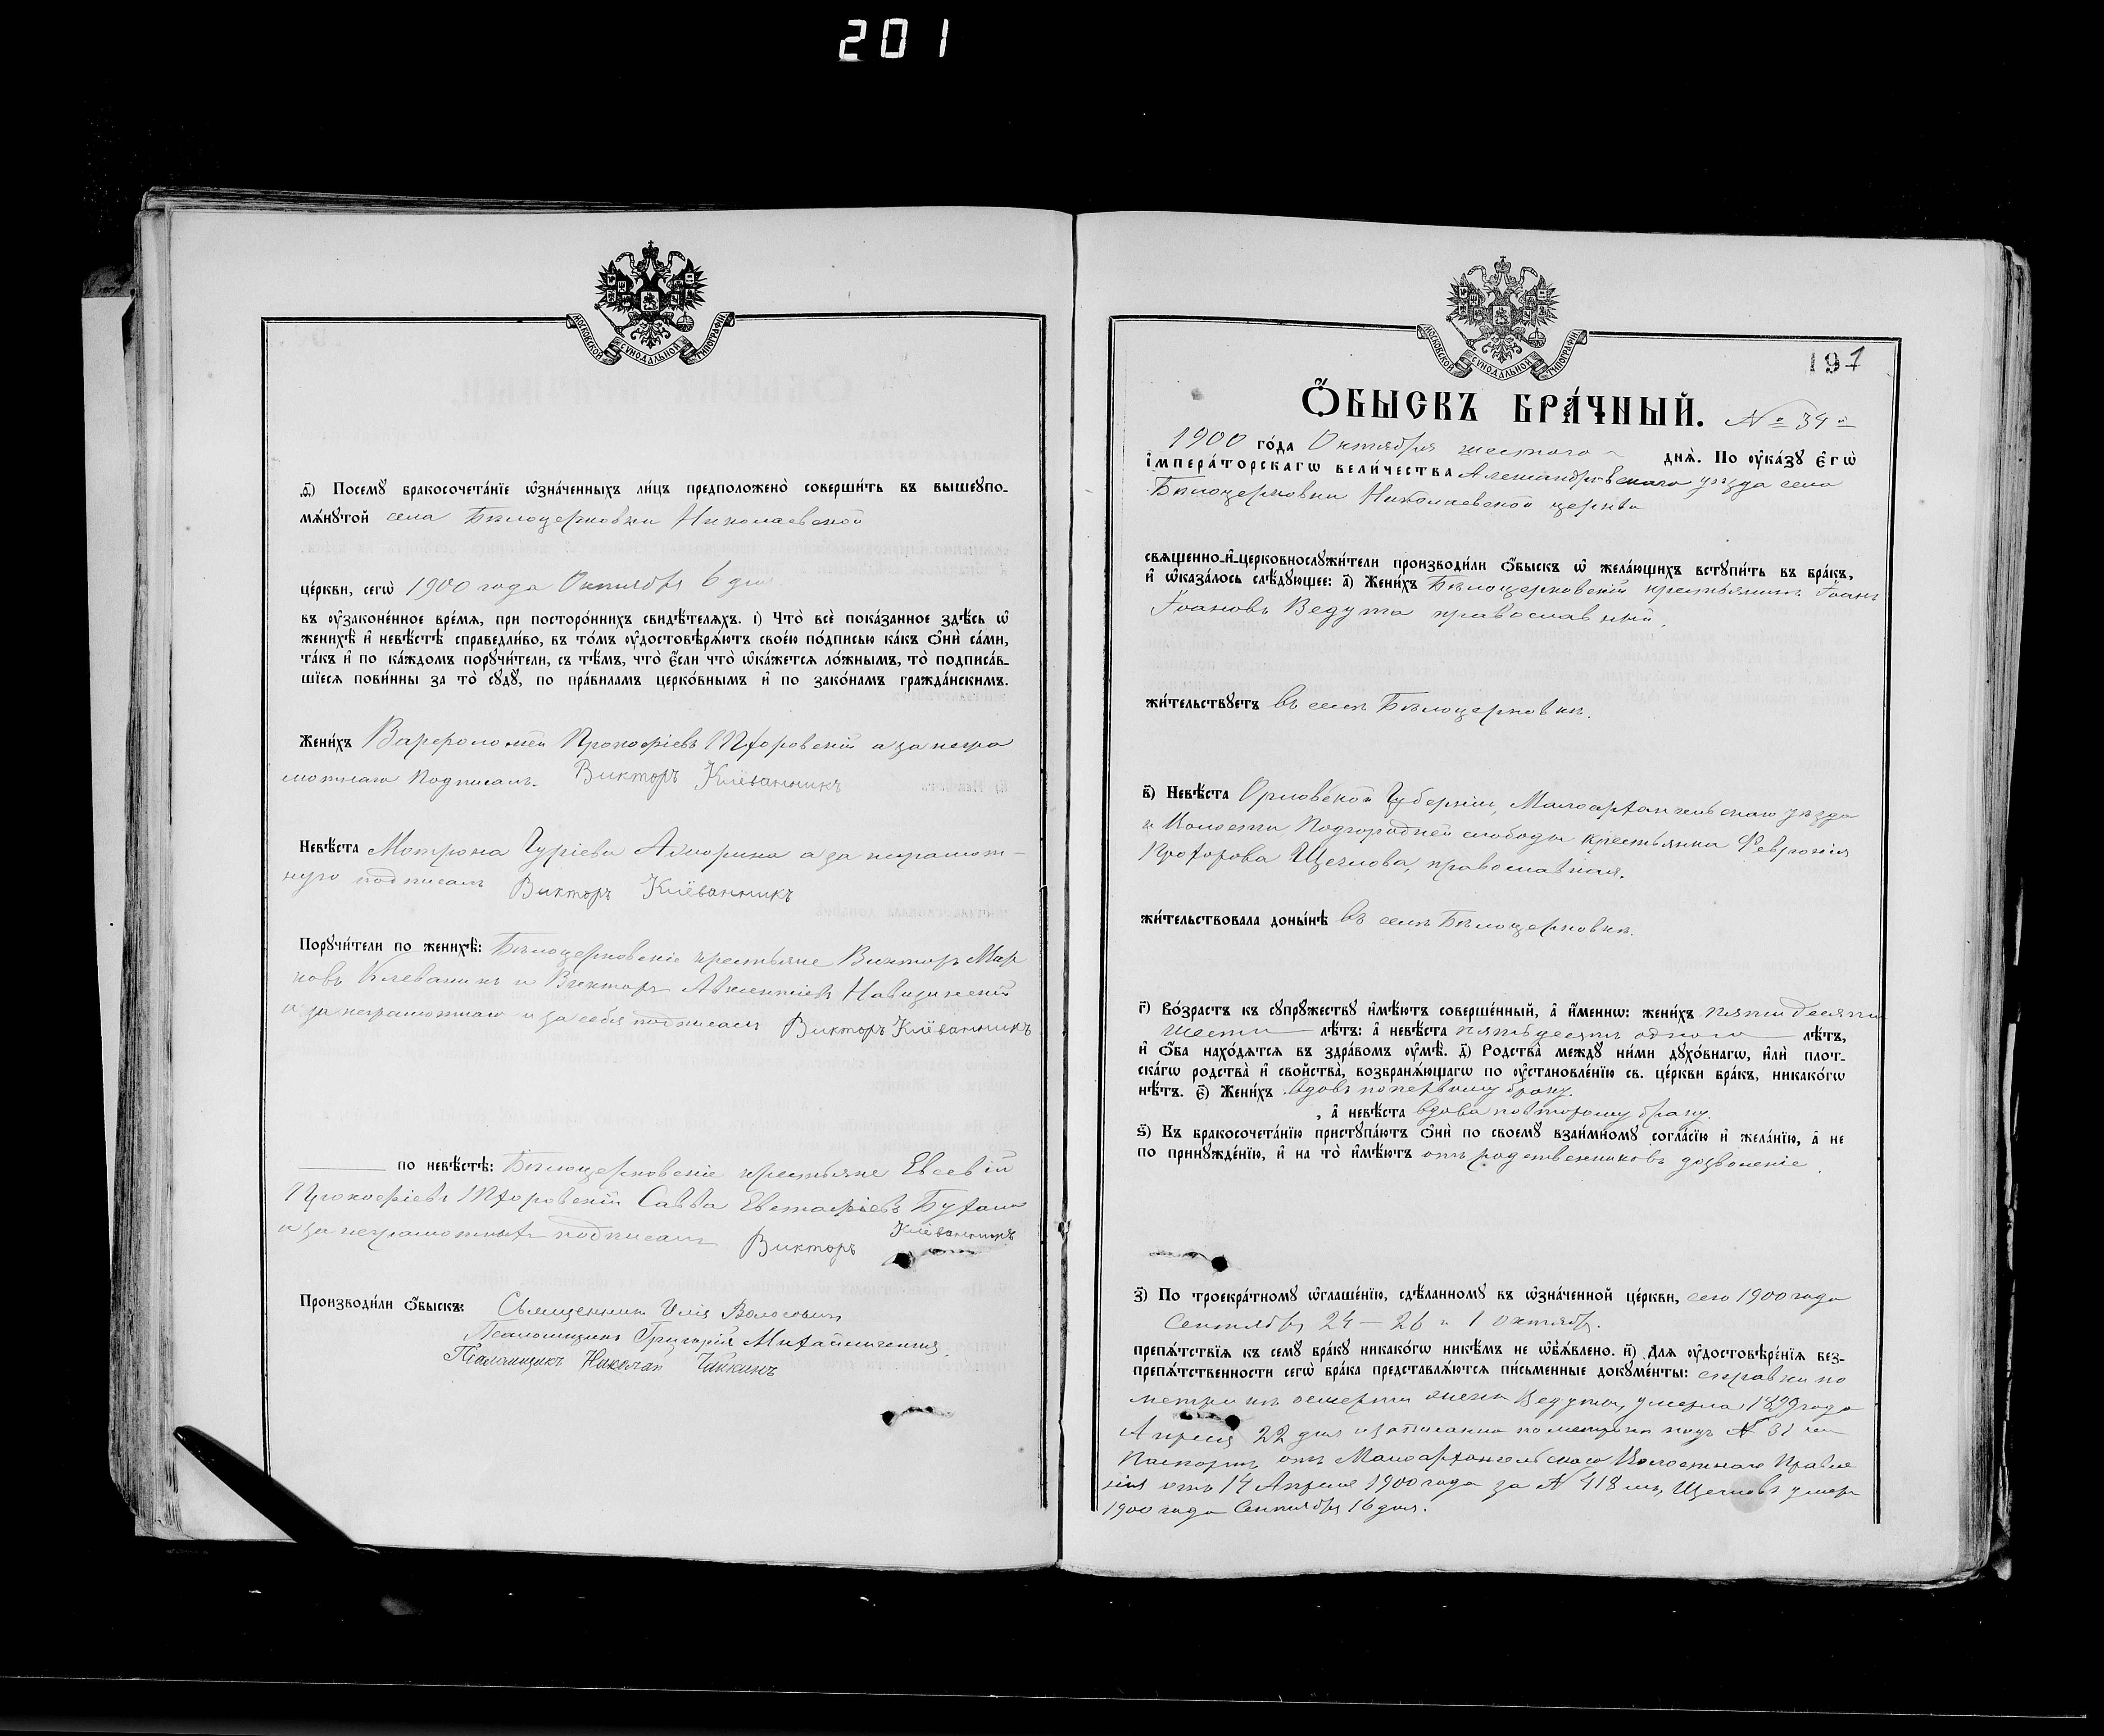 201
МОСКОВСКОЙ СѴНОДАЛЬНОЙ ТИПОГРАФІИ
д҃) Посемꙋ бракосочета́нїе ѡ҆зна́ченныхъ ли́цъ предположено̀ соверши́ть въ вышеꙋпо-
мѧ́нꙋтой села Бѣлоцерковки Николаевской
це́ркви, сегѡ̀ 1900 года Октября 6 дня
въ ᲂу҆зако́ненное вре́мѧ, при посторо́ннихъ свидѣ́телѧхъ. і҃) Что̀ всѐ пока́занное здѣ́сь ѡ҆
женихѣ̀ и҆ невѣ́стѣ справедли́во, въ то́мъ ᲂу҆достовѣрѧ́ютъ свое́ю по́дписью ка́къ ѻ҆нѝ са́ми,
та́къ и҆ по ка́ждомъ порꙋчи́тели, съ тѣ́мъ, что̀ є҆́сли что̀ ѡ҆ка́жетсѧ ло́жнымъ, то̀ подписа́в-
шїесѧ пови́нны за то̀ сꙋдꙋ̀, по пра́виламъ церко́внымъ и҆ по зако́намъ гражда́нскимъ.
Жени́хъ Варфоломей Прокофіевъ а за негра
мотнаго подписалъ Викторъ Клёванникъ
Невѣ́ста Матрона Гуріева а за неграмот-
ную подписалъ Викторъ Клёванникъ
Порꙋчи́тели по женихѣ̀: Бѣлоцерковскіе крестьяне Викторъ Мар
ковъ Клеваникъ и Викторъ Авксентіевъ
и за неграмотнаго и за себя подписалъ Викторъ Клёванникъ
по невѣ́стѣ: Бѣлоцерковскіе крестьяне Евсевій
Прокофіевъ Савва Евстафіевъ
и за неграмотныхъ подписалъ Викторъ Клёванникъ
Производи́ли ѻ҆́быскъ: Священникъ Илія Волосевичъ
Псаломщикъ Григорій Михайличенко
Псаломщикъ Николай Чайкинъ
МОСКОВСКОЙ СѴНОДАЛЬНОЙ ТИПОГРАФІИ
197
Ѻ҆́БЫСКЪ БРА́ЧНЫЙ. № 34й
1900 го́да Октября шестого днѧ̀. По ᲂу҆ка́зꙋ є҆гѡ̀
і҆мпера́торскагѡ вели́чества Александровскаго уѣзда села
Бѣлоцерковки Николаевской церкви
свѧще́нно-и҆-церковнослꙋжи́тели производи́ли ѻ҆́быскъ ѡ҆ жела́ющихъ встꙋпи́ть въ бра́къ,
и҆ ѡ҆каза́лось слѣ́дꙋющее: а҃) Жени́хъ Бѣлоцерковскій крестьянинъ Іоанъ
Іоановъ Ведута православный.
жи́тельствꙋетъ въ селѣ Бѣлоцерковкѣ.
в҃) Невѣ́ста Орловской Губерніи, Малоархангельскаго уѣзда
и Волости Подгородней слободы крестьянка Февронія
Прохорова Щеглова, православная.
жи́тельствовала доны́нѣ въ селѣ Бѣлоцерковкѣ.
г҃) Во́зрастъ къ сꙋпрꙋ́жествꙋ и҆мѣ́ютъ соверше́нный, а҆ и҆́меннѡ: жени́хъ пяти десяти
шести лѣ́тъ: а҆ невѣ́ста пятьдесятъ одного лѣ́тъ,
и҆ ѻ҆́ба нахо́дѧтсѧ въ здра́вомъ ᲂу҆мѣ̀. д҃) Родства̀ междꙋ ни́ми дꙋхо́внагѡ, и҆лѝ плот-
ска́гѡ родства̀ и҆ свойства̀, возбранѧ́ющагѡ по ᲂу҆становле́нїю св. це́ркви бра́къ, никако́гѡ
нѣ́тъ. є҃) Жени́хъ вдовъ по первому браку.
, а҆ невѣ́ста вдова по второму браку.
ѕ҃) Къ бракосочета́нїю пристꙋпа́ютъ ѻ҆нѝ по своемꙋ̀ взаи́мномꙋ согла́сїю и҆ жела́нїю, а҆ не
по принꙋжде́нїю, и҆ на то̀ и҆мѣ́ютъ отъ родственниковъ дозволеніе.
з҃) По троекра́тномꙋ ѡ҆глаше́нїю, сдѣ́ланномꙋ въ ѡ҆зна́ченной це́ркви, сего 1900 года
Сентября 24 — 26 и 1 Октября.
препѧ́тствїѧ къ семꙋ̀ бра́кꙋ никако́гѡ никѣ́мъ не ѡ҆б̾ѧ́влено. и҃) Длѧ ᲂу҆достовѣре́нїѧ без-
препѧ́тственности сегѡ̀ бра́ка представлѧ́ютсѧ пи́сьменные докꙋме́нты: справки по
метрикѣ о смерти жены Ведуты, умерла 1899 года
Апрѣля 22 дня и записанна по метрикѣ подъ № 31 мъ
Паспортъ отъ Малоархангельскаго Волостнаго Правле
нія отъ 14 Апрѣля 1900 года за № 418 мъ, Щегловъ умеръ
1900 года Сентября 16 дня.